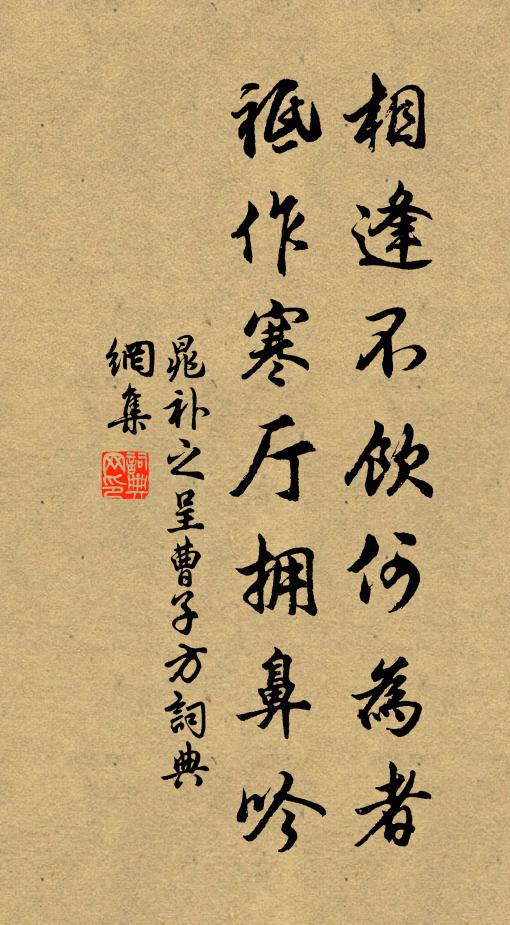 相逢不飲何為者
祗作寒厅拥鼻吟
晁补之呈曹子方詞典
網集
詞典网印